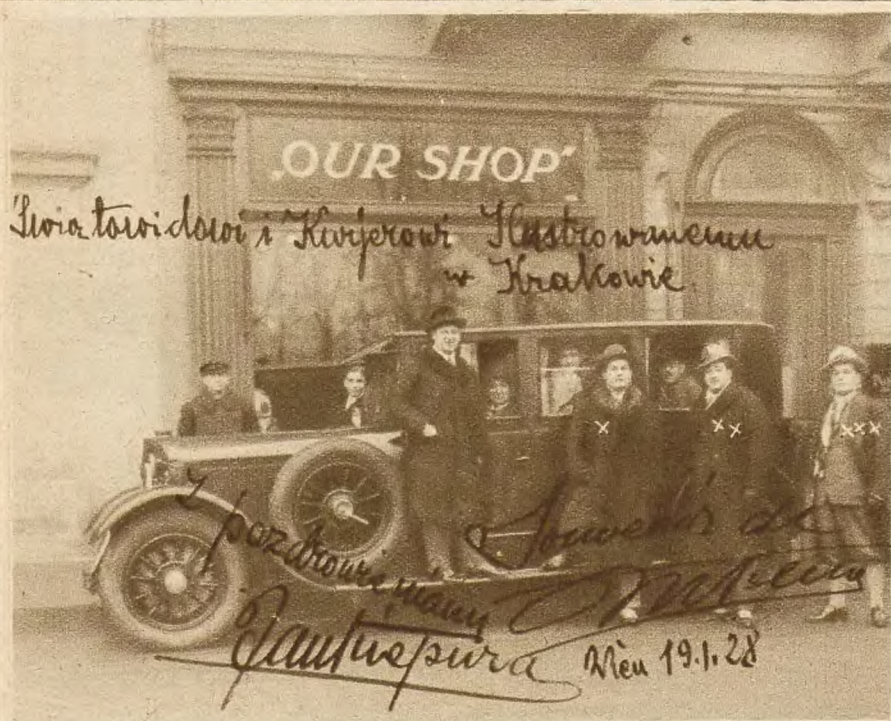 „OUR SHOP"
Światowidowi i Kurjerowi Ilustrowanemu
w Krakowie.
x xx xxx
z pozdrowieniami
Jan Kiepura
Souvenir de
Wien 19.1.28